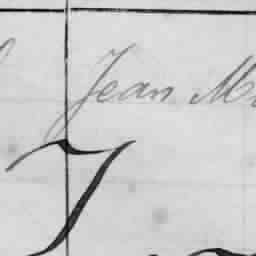 Jean M
J